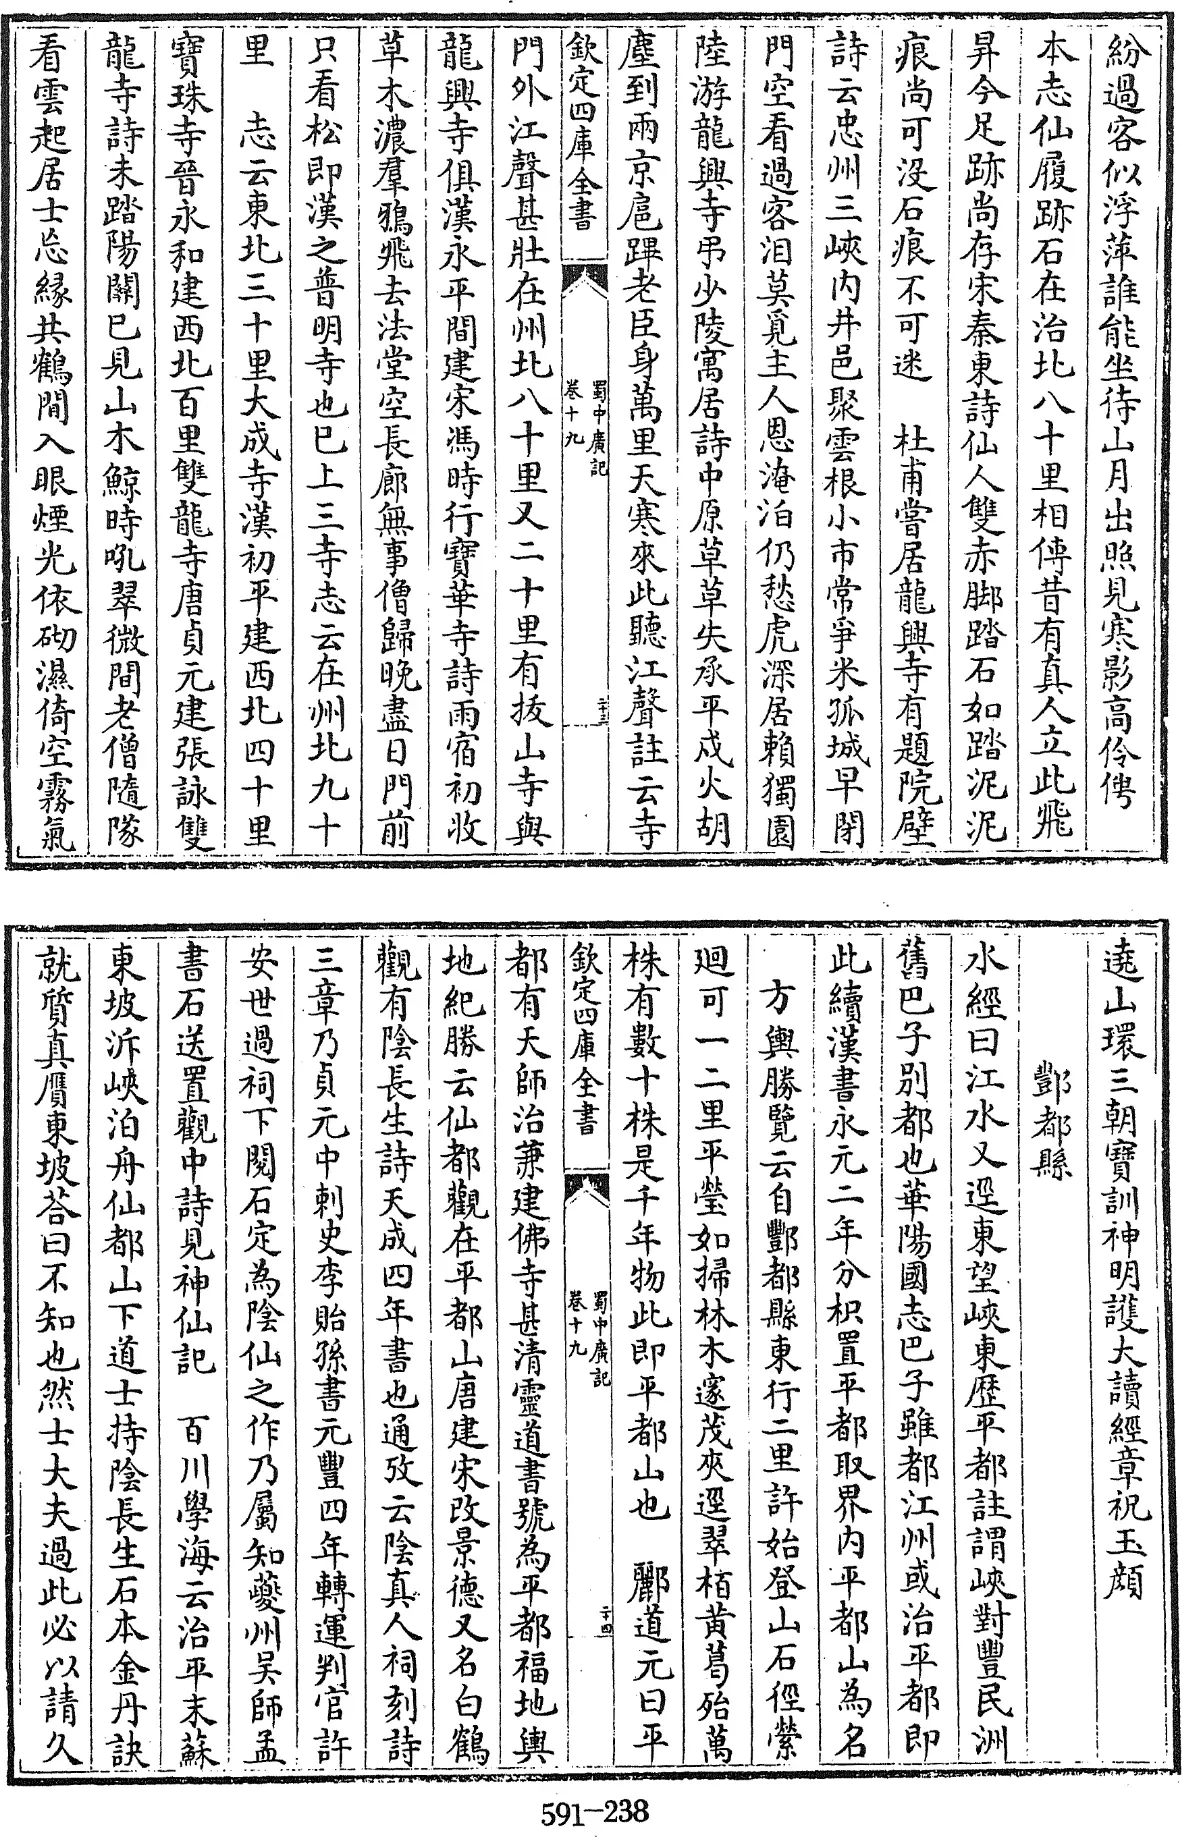 紛過客似浮萍誰能坐待山月出照見寒影高伶俜
本志仙履跡石在治北八十里相傳昔有真人立此飛
昇今足跡尚存宋秦東詩仙人雙赤脚踏石如踏泥泥
痕尚可沒石痕不可迷　杜甫嘗居龍興寺有題院壁
詩云忠州三峽内井邑聚雲根小市常爭米孤城早閉
門空看過客泪莫覓主人恩淹泊仍愁虎深居賴獨園
陸游龍興寺弔少陵寓居詩中原草草失承平戍火胡
塵到兩京扈蹕老臣身萬里天寒來此聽江聲註云寺
欽定四庫全書
蜀中廣記
卷十九
二十三
門外江聲甚壯在州北八十里又二十里有拔山寺與
龍興寺俱漢永平間建宋馮時行寶華寺詩雨宿初收
草木濃羣鴉飛去法堂空長廊無事僧歸晚盡日門前
只看松即漢之普明寺也已上三寺志云在州北九十
里　志云東北三十里大成寺漢初平建西北四十里
寶珠寺晉永和建西北百里雙龍寺唐貞元建張詠雙
龍寺詩未踏陽關已見山木鯨時吼翠微間老僧隨隊
看雲起居士忘緣共鶴閒入眼煙光依砌濕倚空霧氣
遶山環三朝寶訓神明護大讀經章祝玉顔
酆都縣
水經曰江水又逕東望峽東歴平都註謂峽對豐民洲
舊巴子别都也華陽國志巴子雖都江州或治平都即
此續漢書永元二年分枳置平都取界内平都山為名
方輿勝覽云自酆都縣東行二里許始登山石徑縈
廻可一二里平瑩如掃林木邃茂夾逕翠柏黄葛殆萬
株有數十株是千年物此即平都山也　酈道元曰平
欽定四庫全書
蜀中廣記
卷十九
二十四
都有天師治兼建佛寺甚清靈道書號為平都福地輿
地紀勝云仙都觀在平都山唐建宋改景德又名白鶴
觀有陰長生詩天成四年書也通攷云陰真人祠刻詩
三章乃貞元中刺史李貽孫書元豐四年轉運判官許
安世過祠下閱石定為陰仙之作乃屬知夔州吳師孟
書石送置觀中詩見神仙記　百川學海云治平末蘇
東坡泝峽泊舟仙都山下道士持陰長生石本金丹訣
就質真贋東坡荅曰不知也然士大夫過此必以請久
591-238